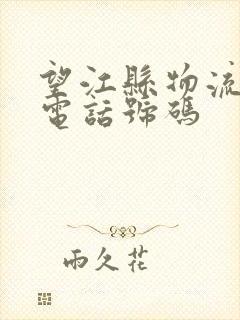 望江縣物流
電話號碼
雨久花